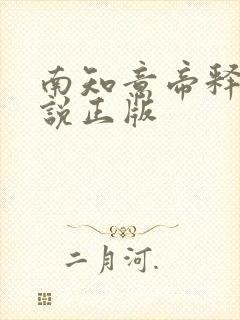 南知意帝释
說正版
二月河.